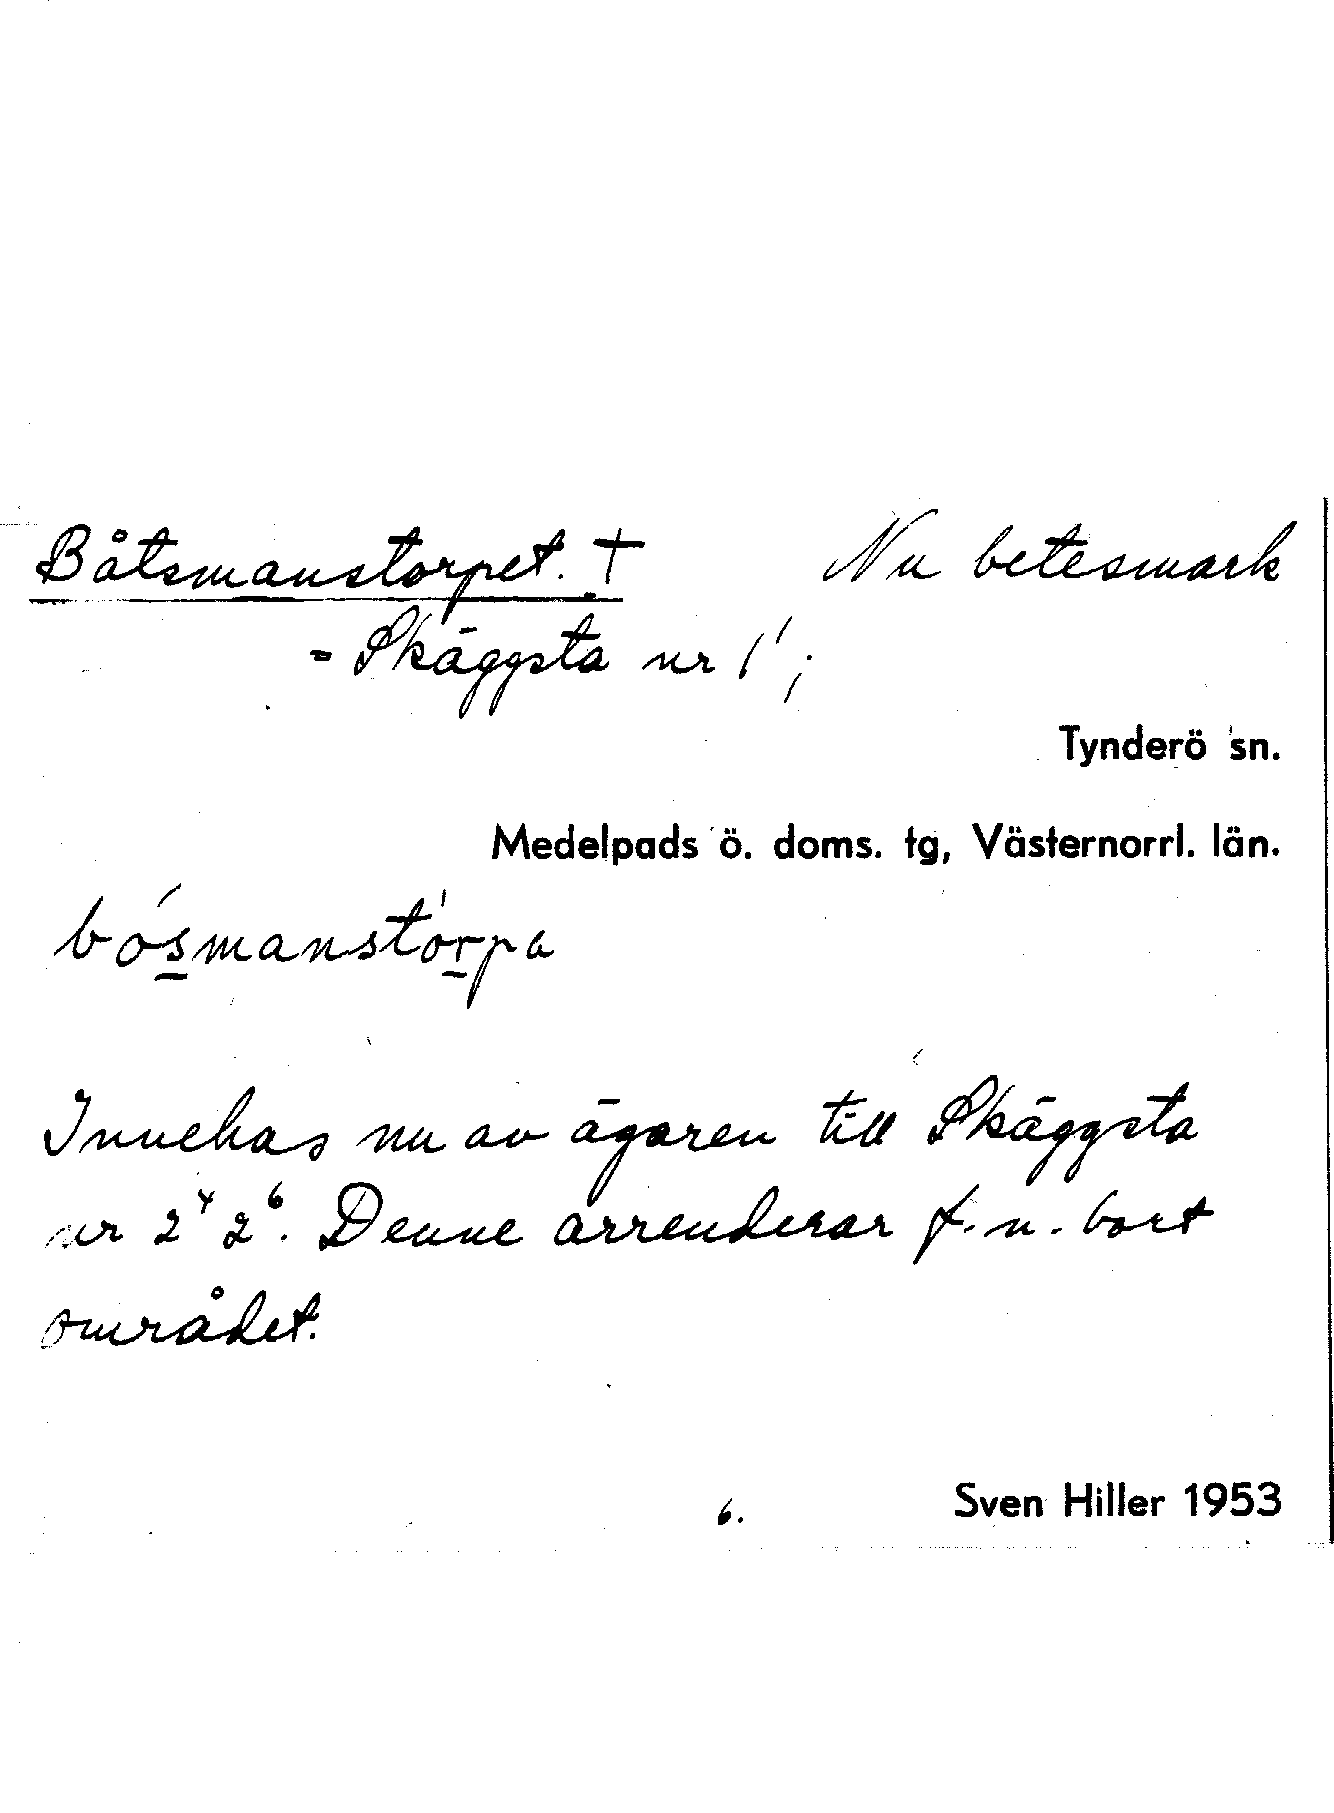 Båtsmanstorpet. † Nu betesmark
= Skäggsta nr 1¹;
Tynderö sn.
Medelpads ö. doms. tg, Västernorrl. län.
bós̲manstór̲pa
Innehas nu av ägaren till Skäggsta
nr 2⁴ 2⁶. Denne arrenderar f.n. bort
området.
6. Sven Hiller 1953